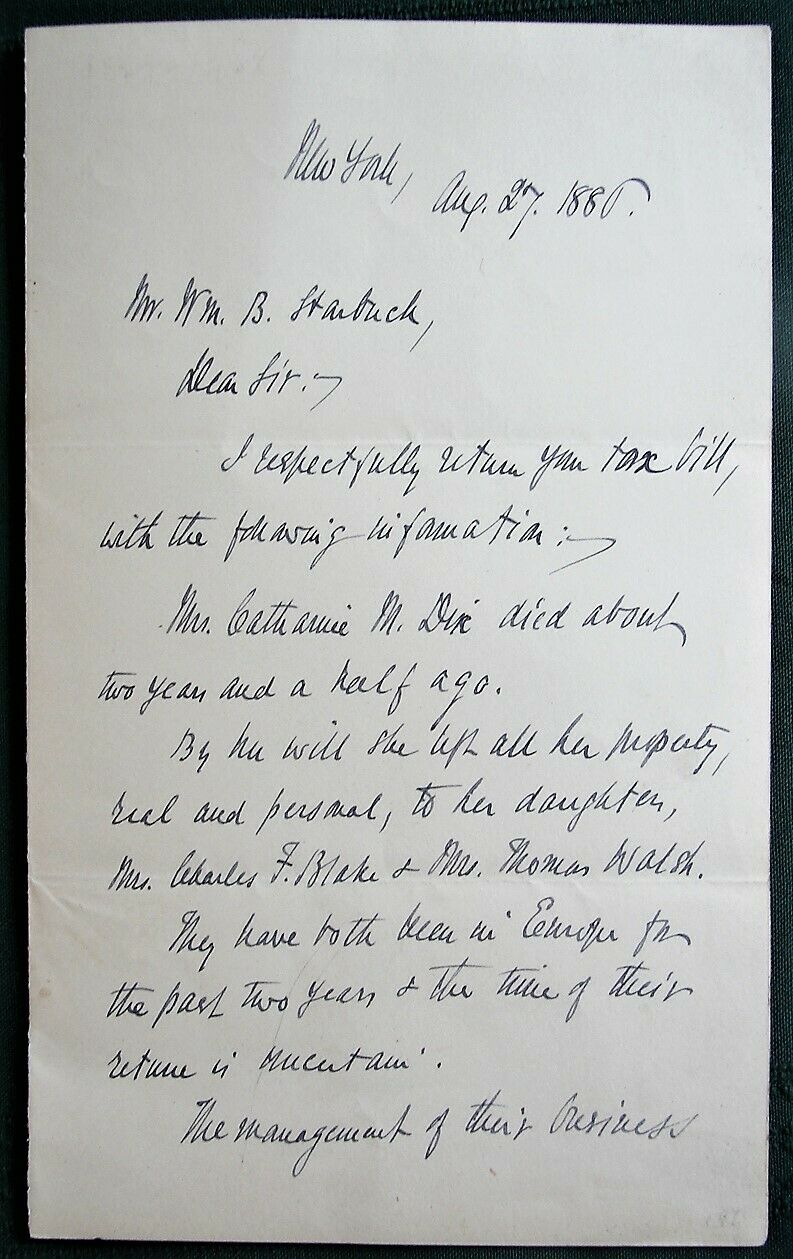 New York,
Aug. 27. 1886.
Mr. Wm. B. Starbuck,
Dear Sir:—
I respectfully return your tax bill,
with the following information:—
Mrs. Catharine M. Dix died about
two years and a half ago.
By her will she left all her property,
real and personal, to her daughters,
Mrs. Charles F. Blake & Mrs. Thomas Walsh.
They have both been in Europe for
the past two years & the time of their
return is uncertain.
The management of their business